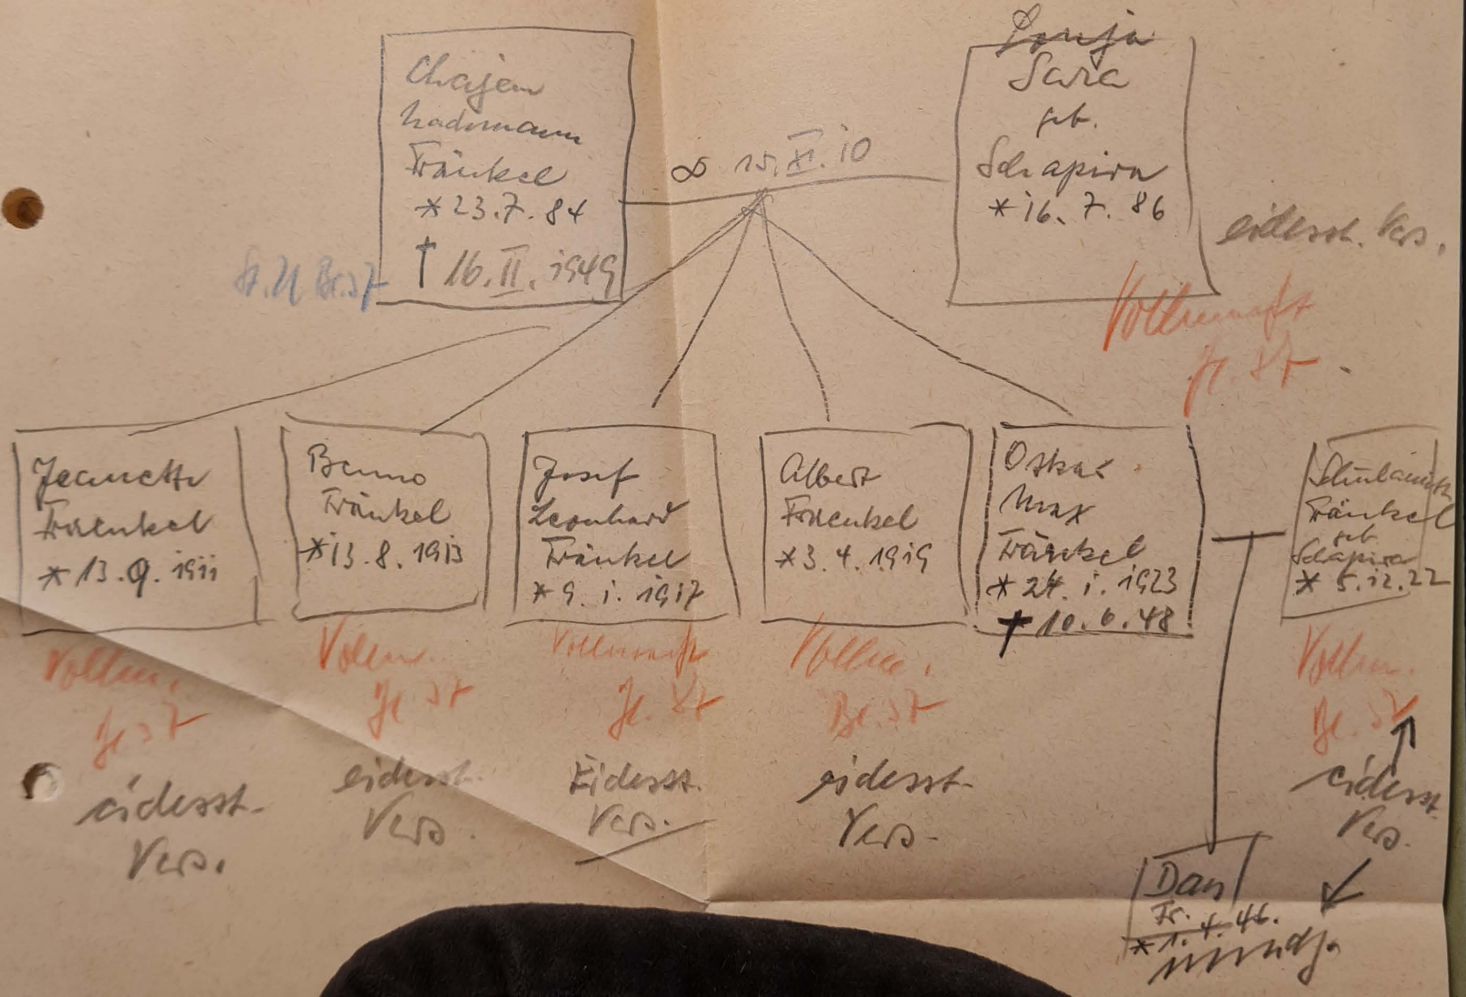 Chajem
Nachmann
Fränkel
* 23.7.84
† 16.II.1949
∞ 15.XI.10
Sonja
Sara
geb.
Schapira
* 16.7.86
eidesst. Vers.
Vollmacht
Bl. 37
Jeanette
Fraenkel
* 13.9.1911
Vollm.
eidesst.
Vers.
Benno
Fränkel
* 13.8.1913
Vollm.
eidesst.
Vers.
Josef
Leonhard
Fränkel
* 9.1.1917
Vollmacht
Eidesst.
Vers.
Albert
Fraenkel
* 3.4.1919
Vollm.
Bl. 37
eidesst.
Vers.
Oskar
Max
Fränkel
* 24.1.1923
† 10.6.48
Schulamith
Fränkel
geb.
Schapira
* 5.12.22
Vollm.
Bl. 37
eidesst.
Vers.
Dan
Fr.
* 1.4.46.
mindj.